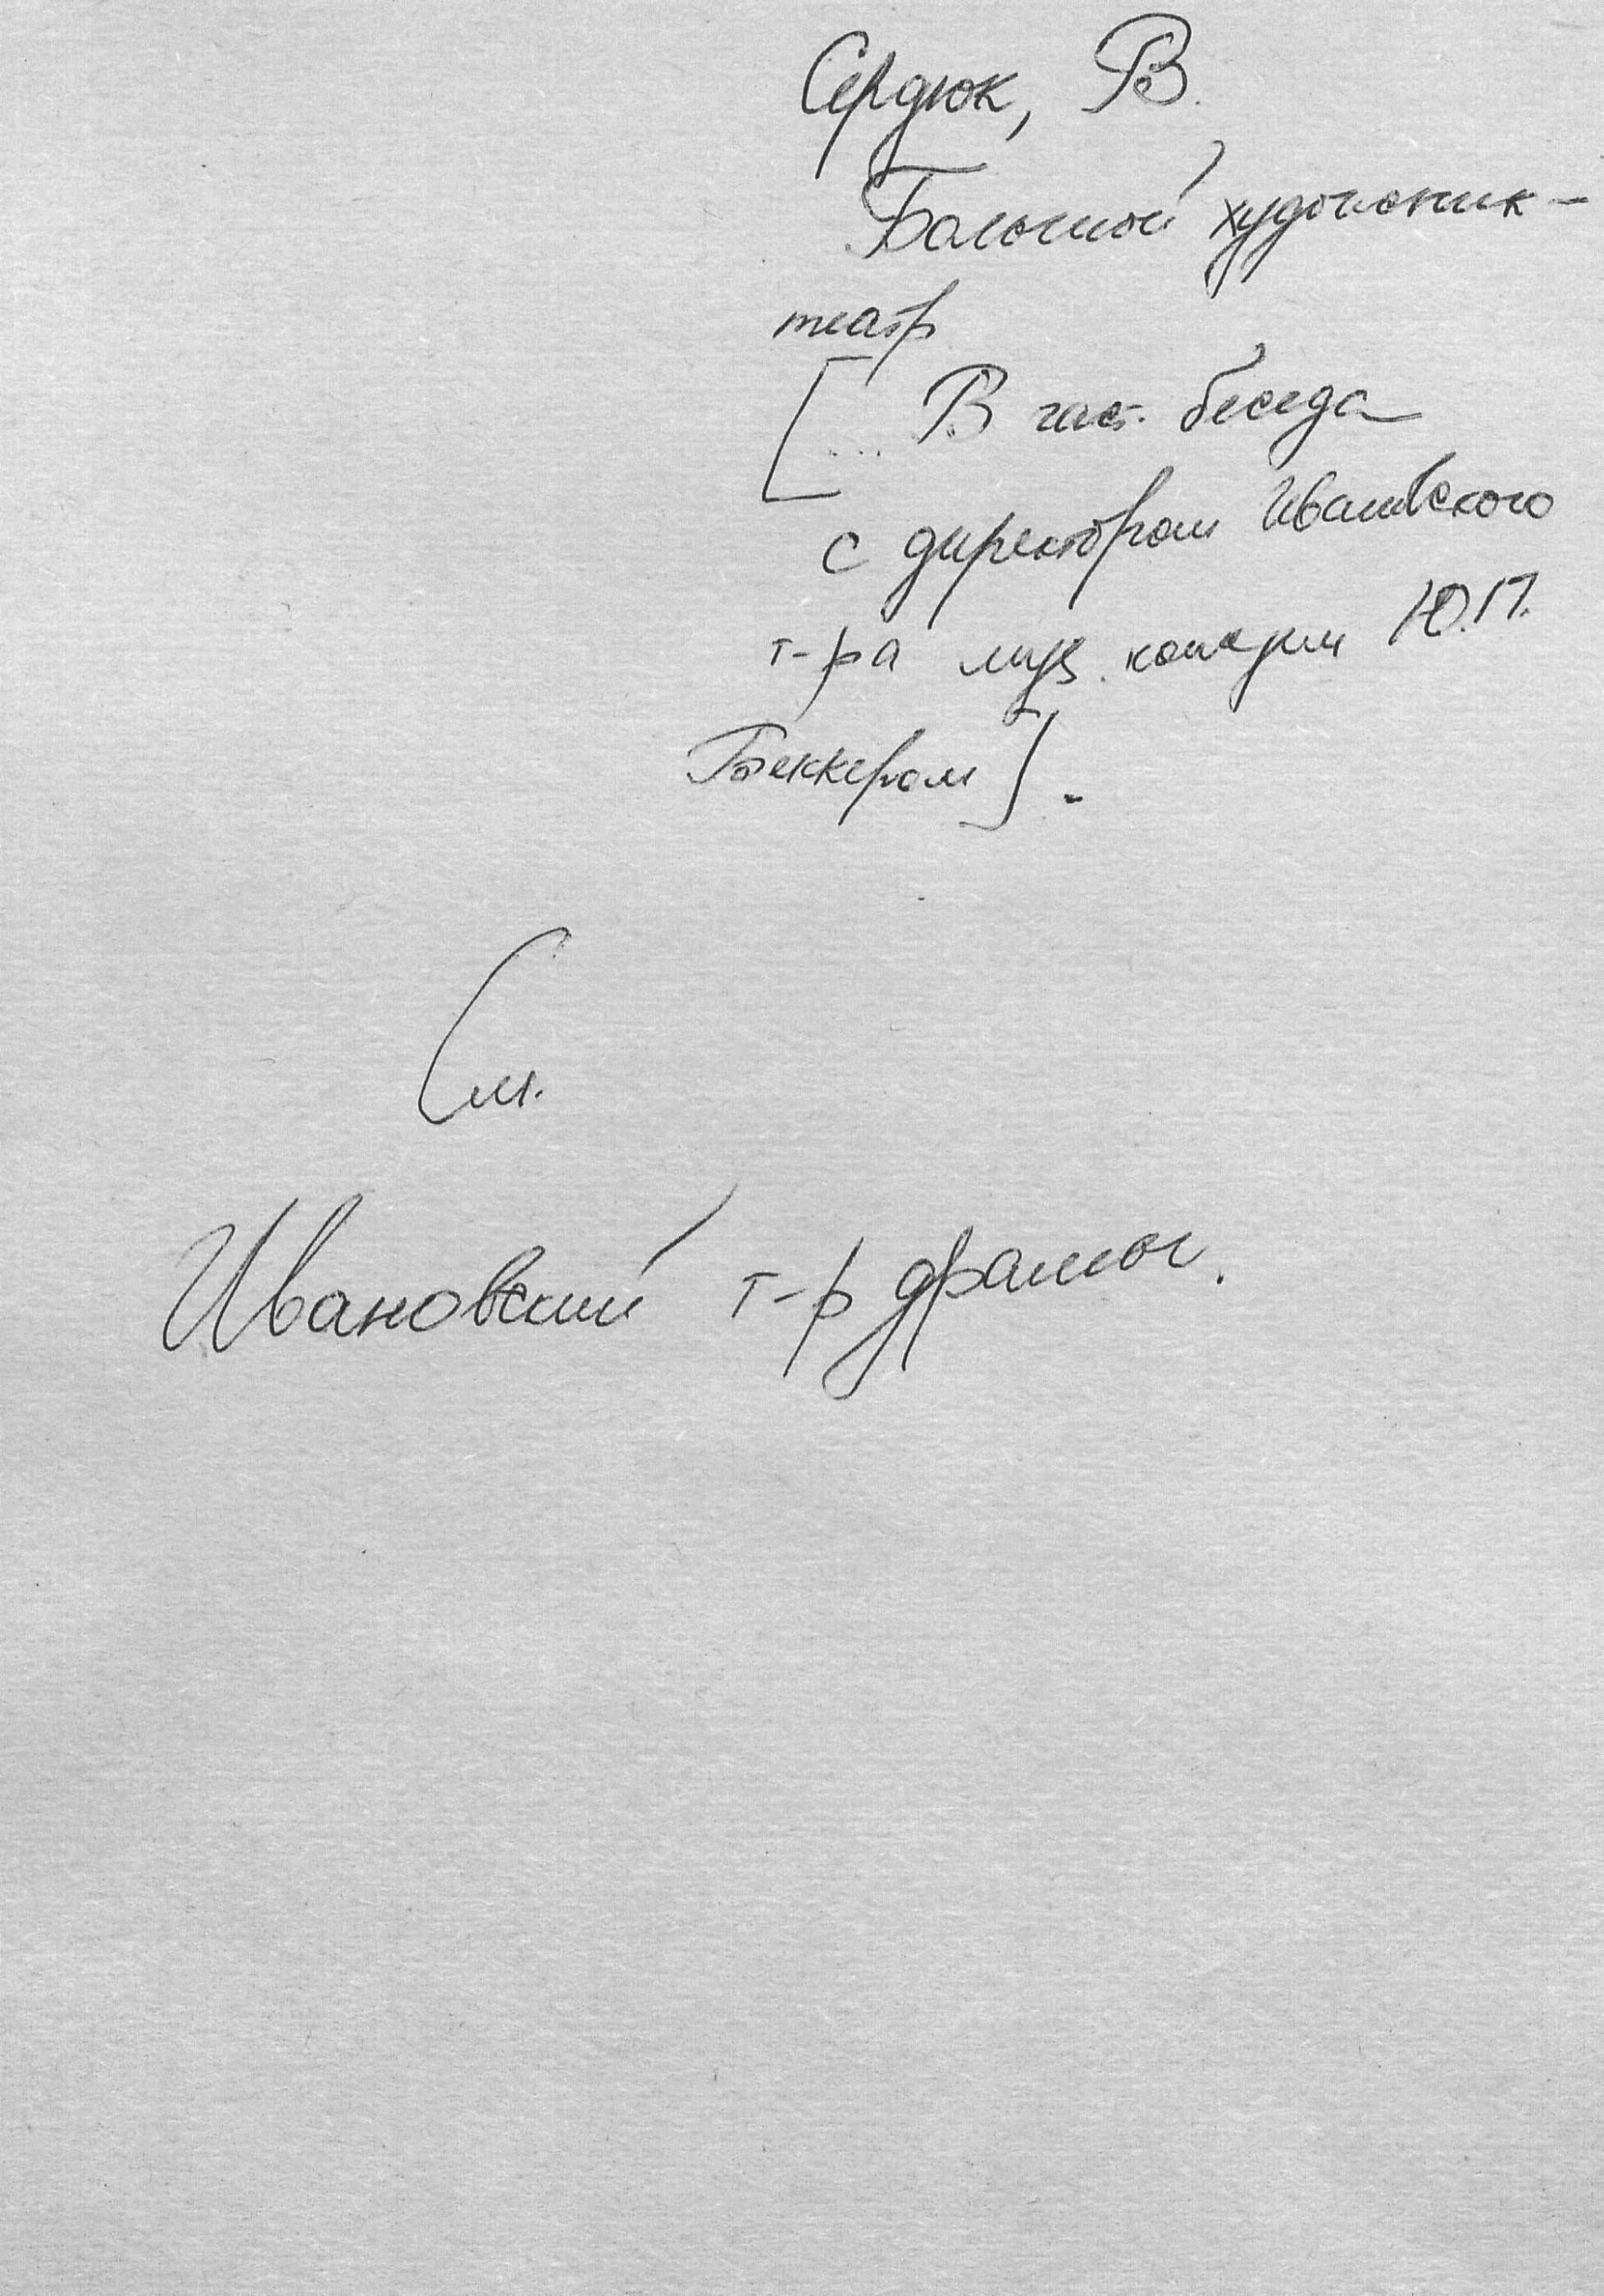 Сердюк, В.
Большой художник –
театр
[... В част. беседа
с директором Ивановского
т-ра муз. комедии Ю.П.
Беккером].
См.
Ивановский т-р драмы.